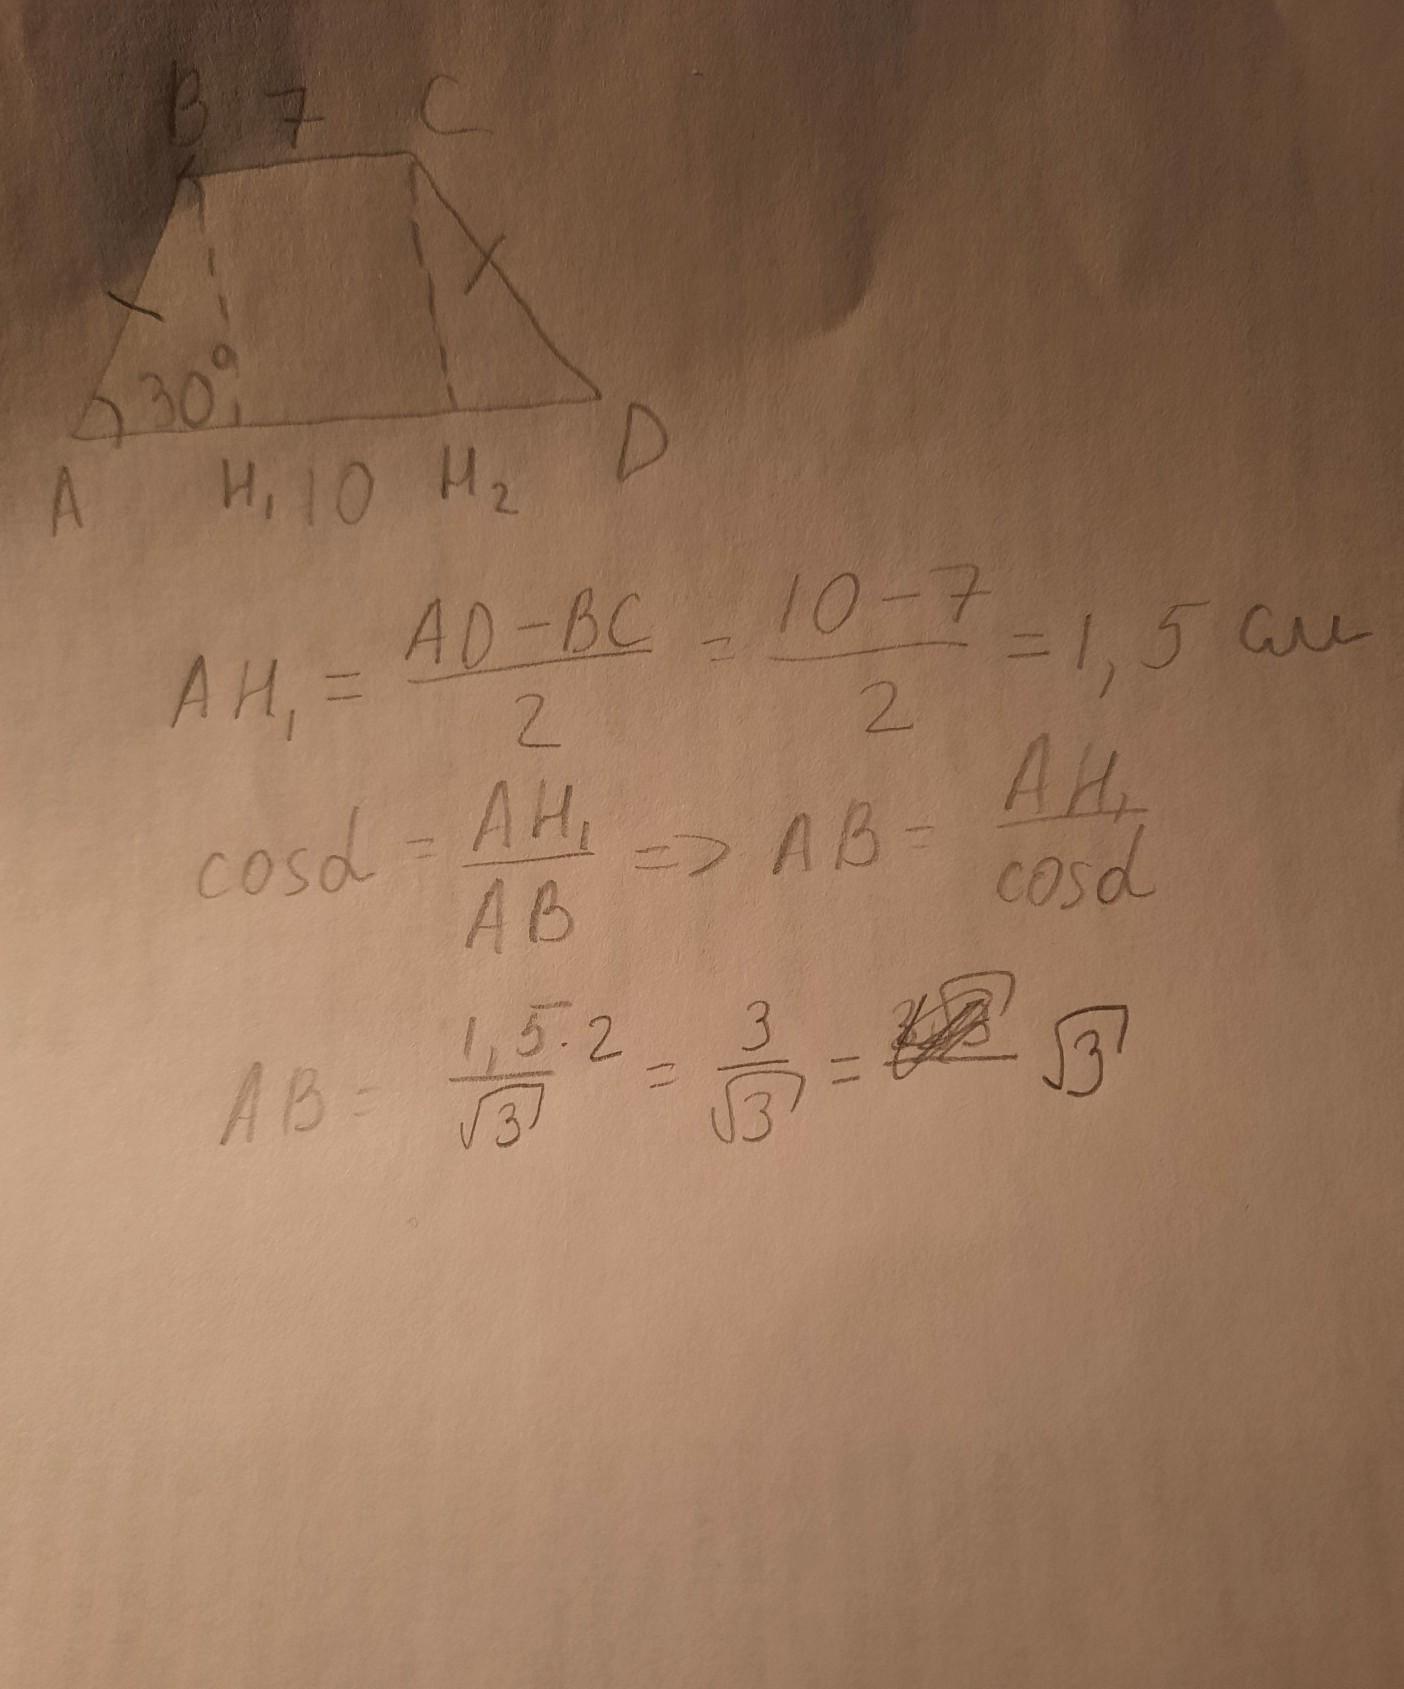 B 7 C
30°
A H₁ 10 H₂ D
AH₁ = (AD - BC)/2 = (10 - 7)/2 = 1,5 см
cosα = AH₁/AB => AB = AH₁/cosα
AB = (1,5 · 2)/√3 = 3/√3 = √3